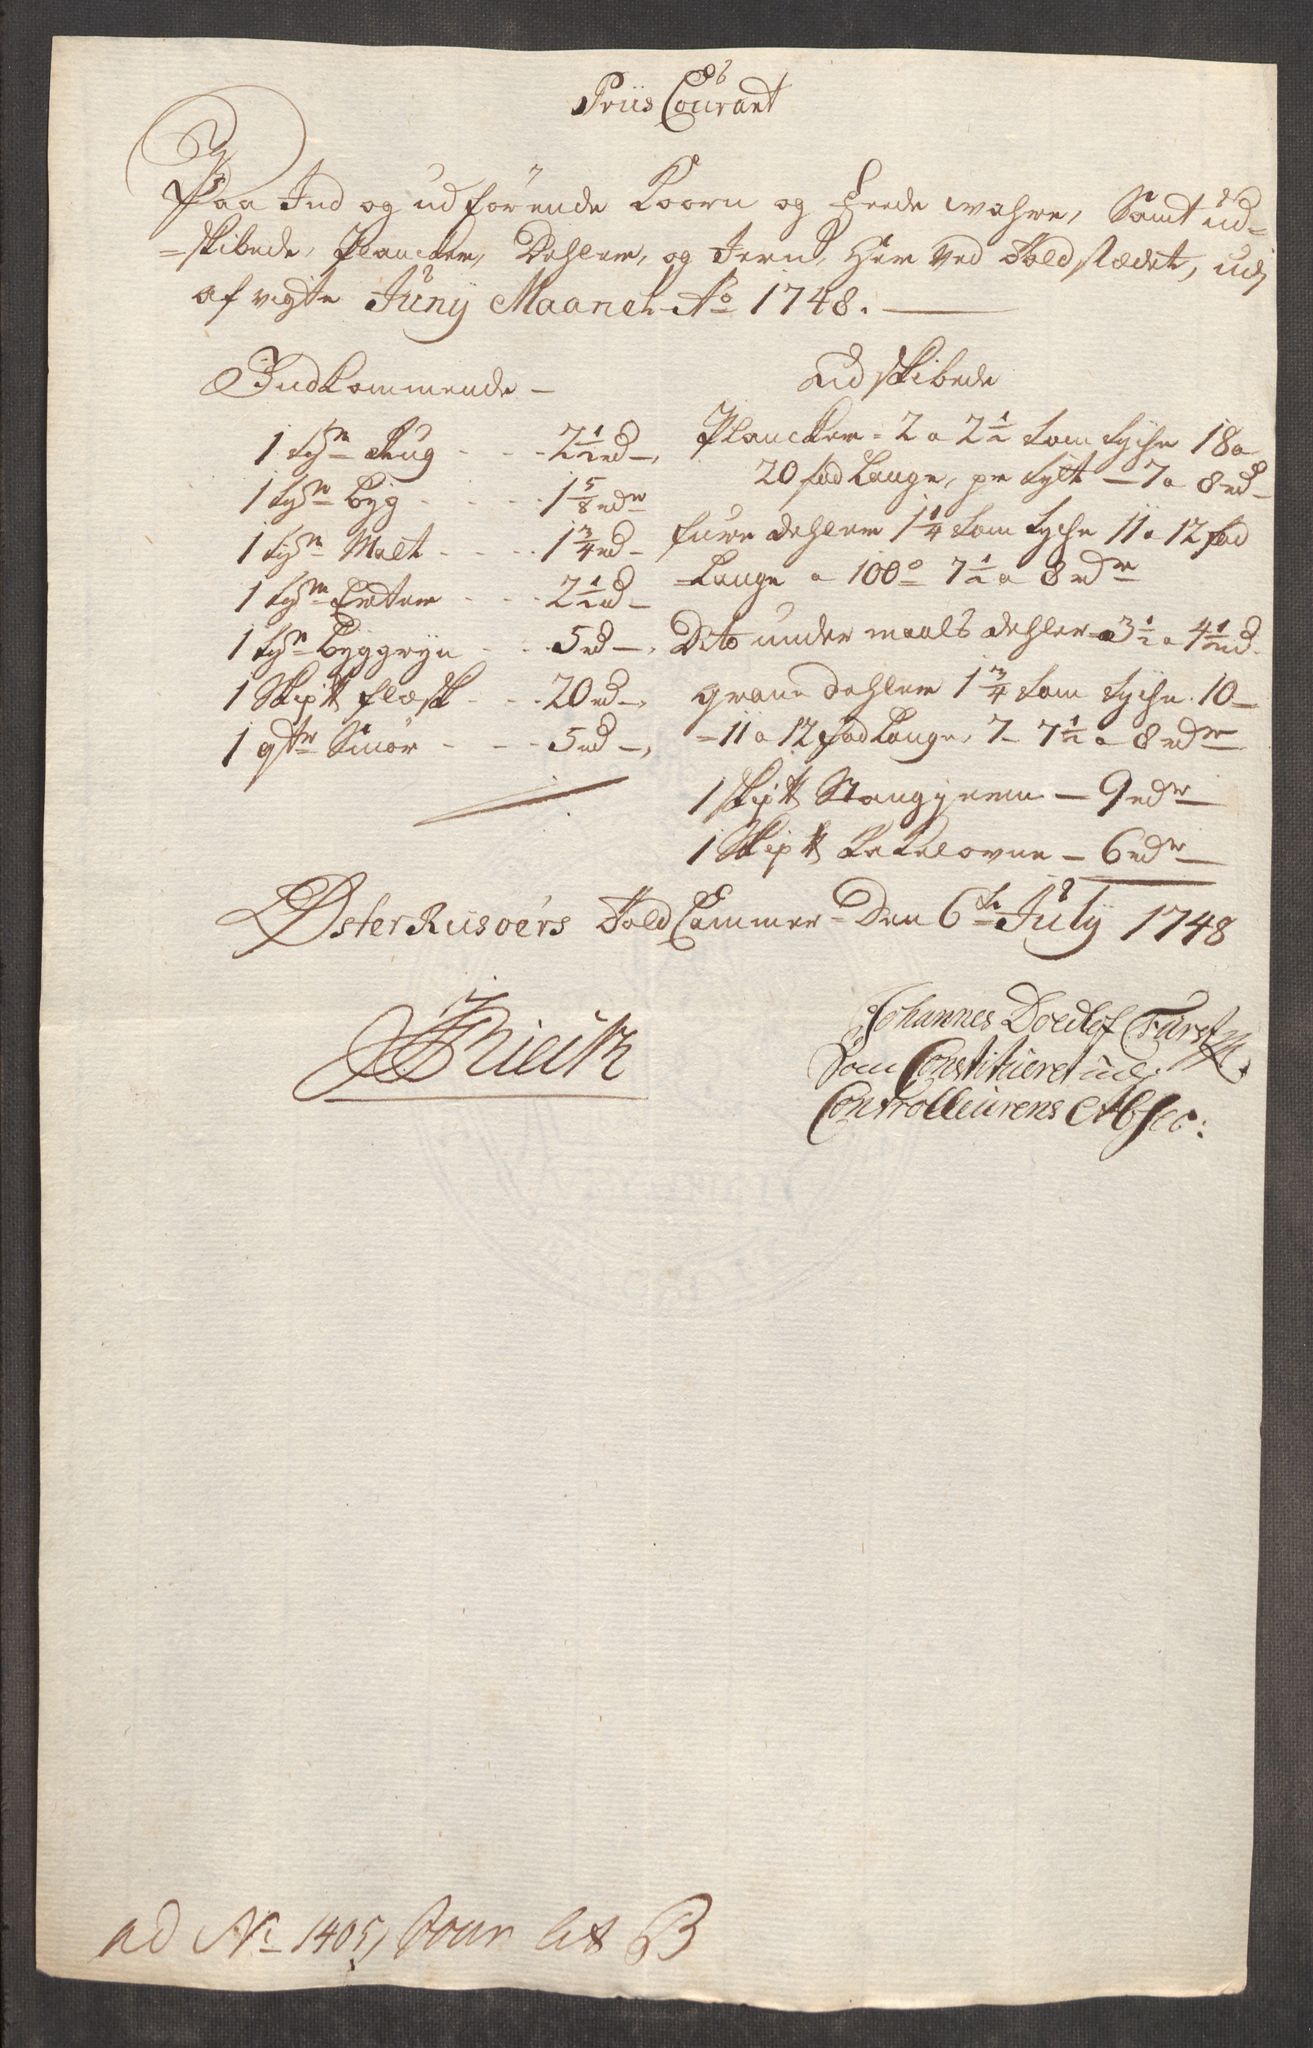 Priis Courant
Paa Ind og udførende Koorn og feede wahre, Samt ud=
=skibede, Plancker, Dehler, og Jern, Her ved Toldstædet, udj
afvigte Junij Maanet Ao 1748.
Indkommende
1 tynn Rug - - - 2 1/2 rd
1 tynn byg - - - 1 5/8 rdr
1 tynn Malt - - - 1 3/4 rd
1 tynn Erter - - - 2 1/2 rd
1 tynn byggryn - - 5 rd
1 Skip℔ flæsk - - 20 rd
1 qtr Smør - - - 5 rd
Udskibede
Plancker = 2 a 2 1/2 tom tyche 18 a
20 fod Lange, pr tylt - 7 a 8 rd
furre dehler 1 1/4 tom tyche 11 a 12 fod
Lange a 100de 7 1/2 a 8 rdr
Dito under maals dehler a 3 1/2 a 4 1/2 rd
grane dehler 1 3/4 tom tyche 10 -
= 11 a 12 fod Lange, 7 - 7 1/2 a 8 rdr
1 Skip℔ Stangjern - 9 rdr
1 Skip℔ Kakelovne - 6 rdr
ØsterRusoers Told Cammer = Den 6te July 1748
Johannes Doedlof Fürst
Som Constitueret udj
Controlleurens Absec:
ad No 1405, Vour lit B